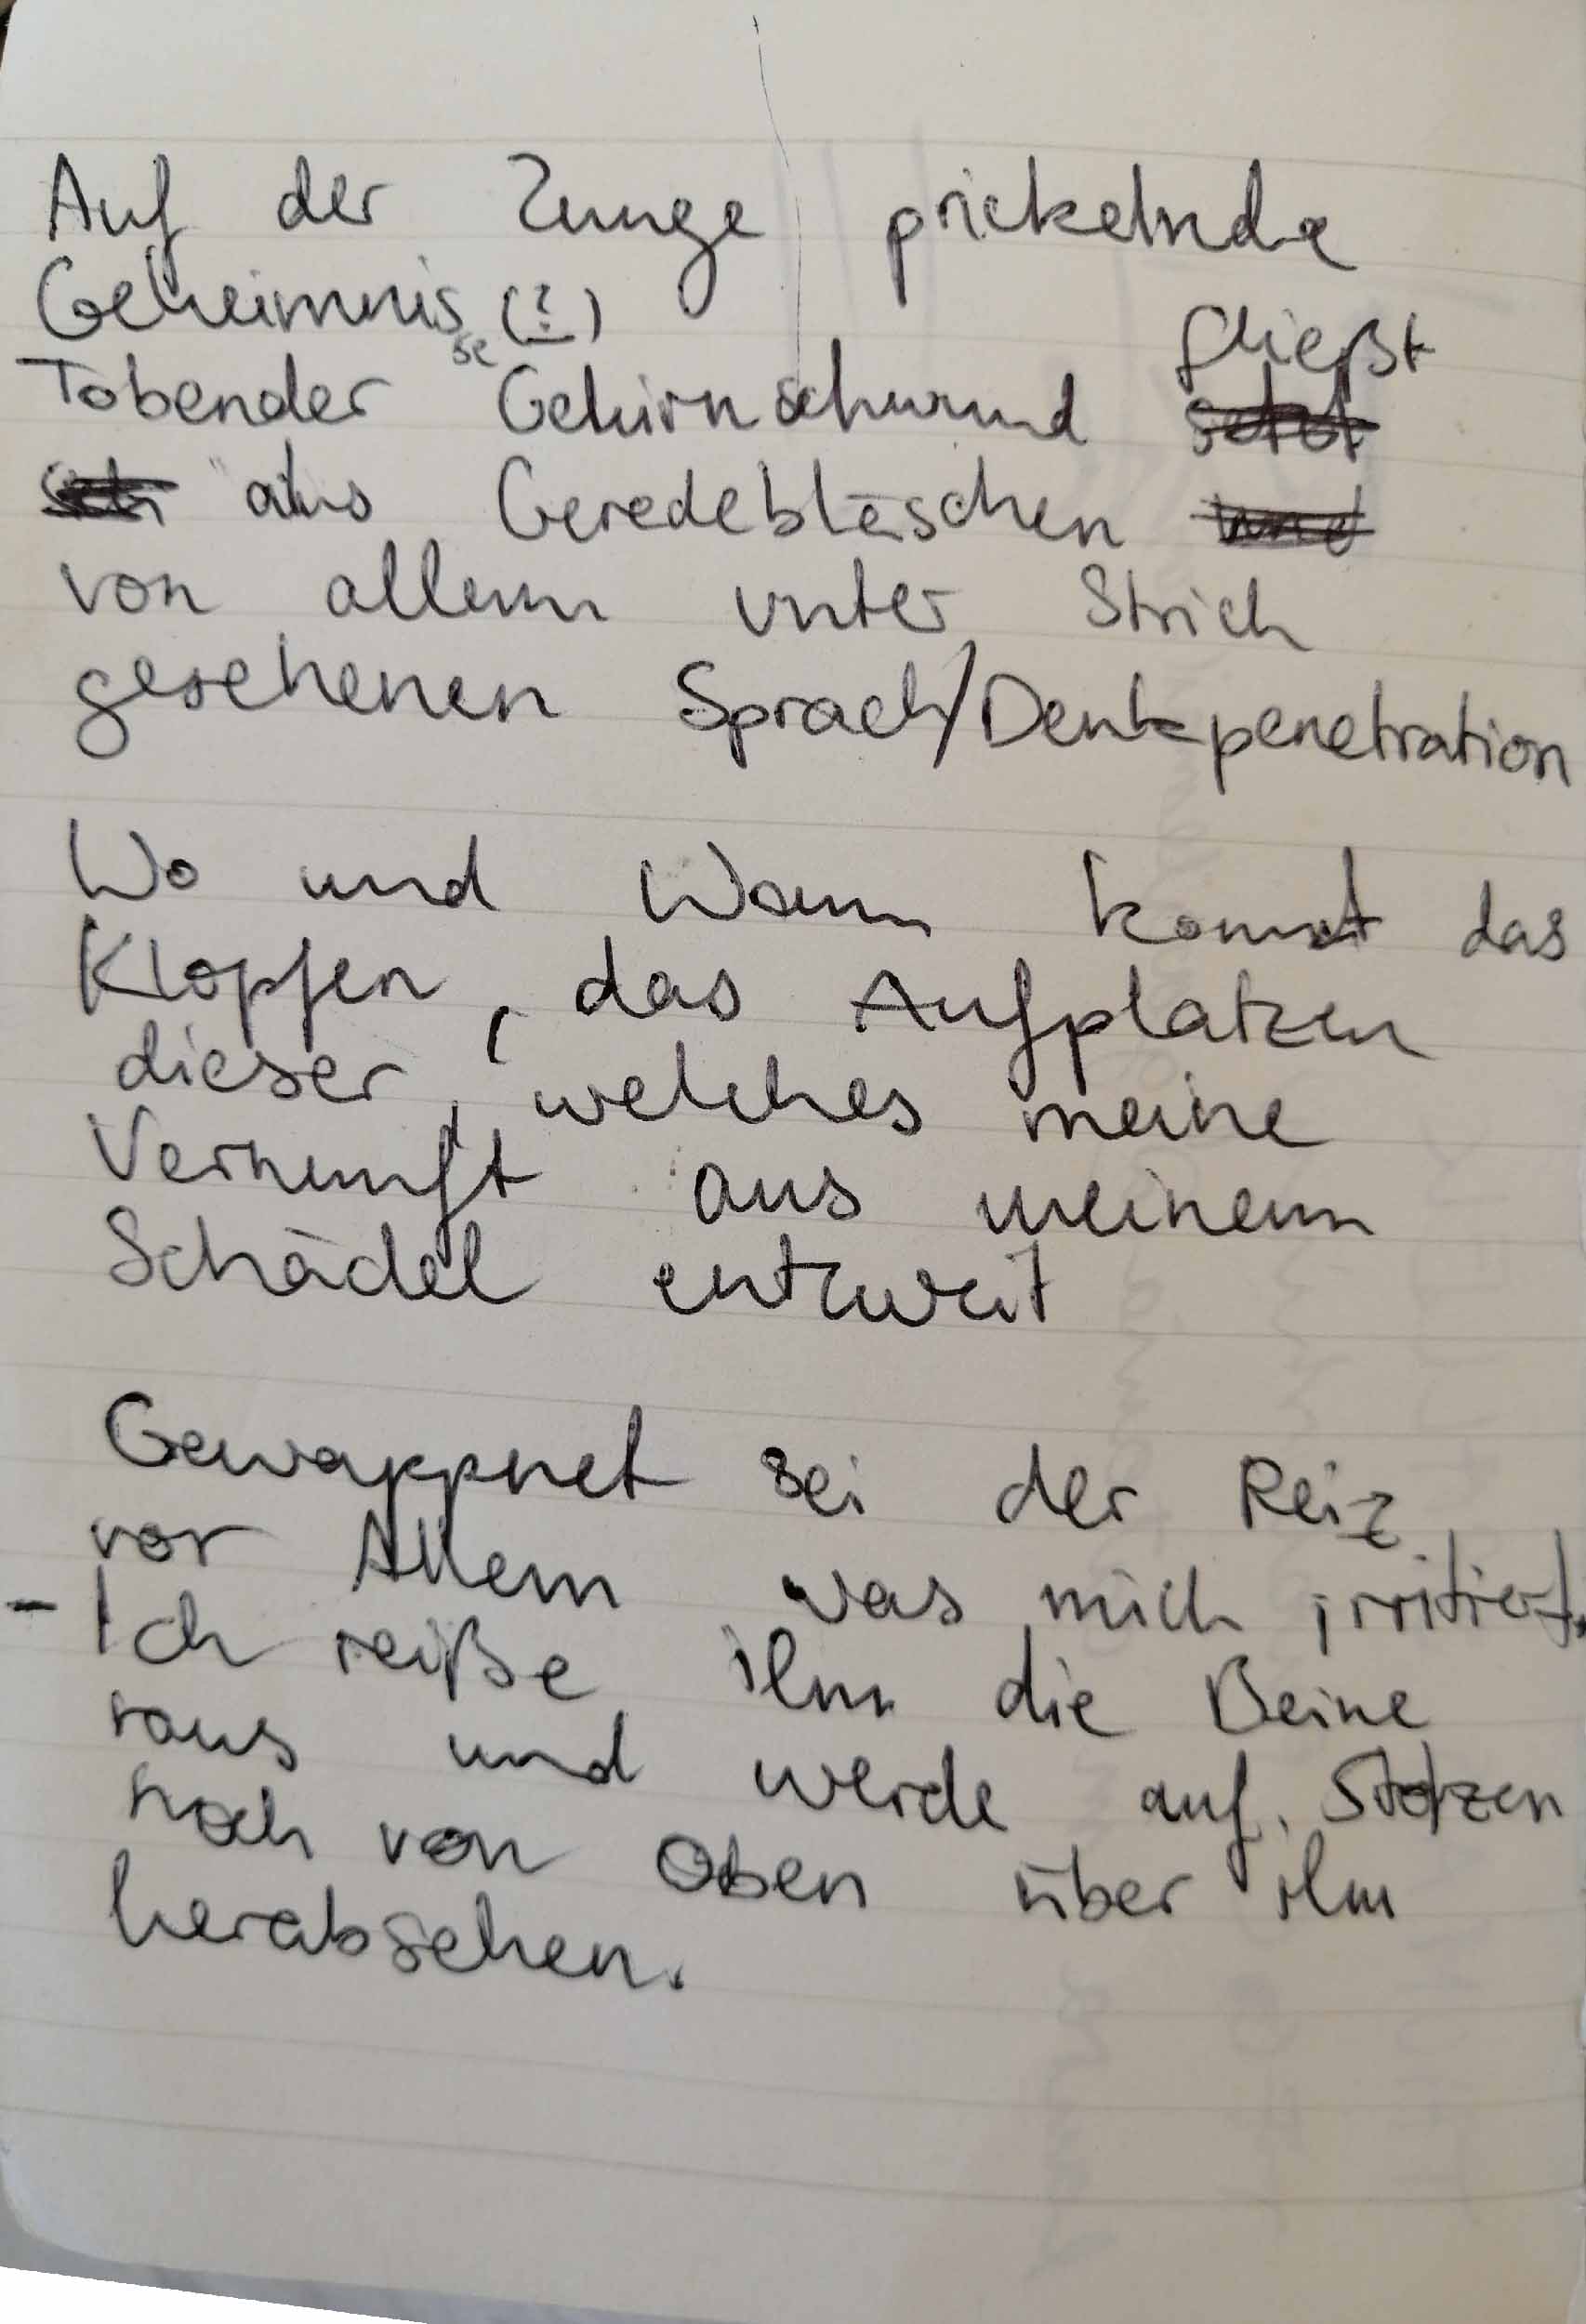 Auf der Zunge prickelnde
Geheimnisse (?)
Tobender Gehirnschwund fließt
aus Geredebläschen
von allem unter Strich
gesehenen Sprach/Denkpenetration
Wo und Wann kommt das
Klopfen, das Aufplatzen
dieser, welches meine
Vernunft aus meinem
Schädel entzweit
Gewappnet sei der Reiz
vor Allem was mich irritiert.
- Ich reiße ihm die Beine
raus und werde auf
noch von Oben über ihm
herabsehen.